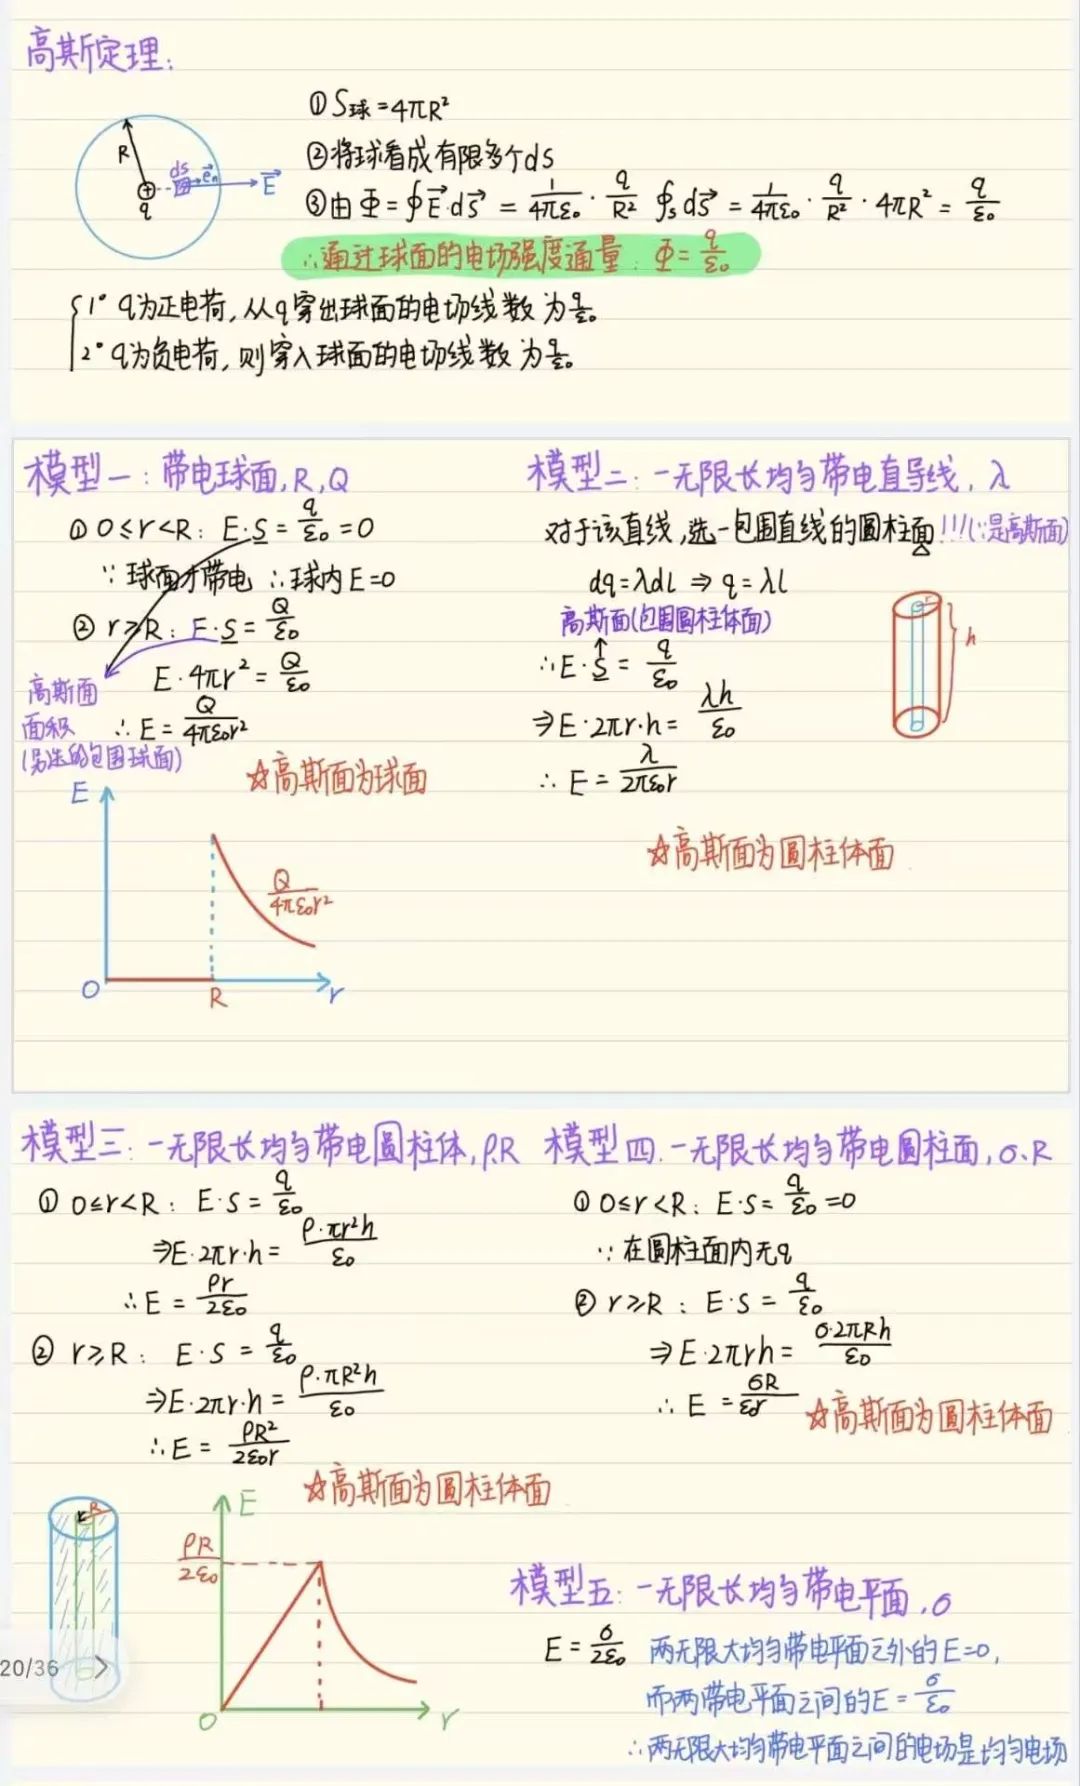 高斯定理:
R
q
ds
e⃗n
E⃗
①S球=4πR²
②将球看成有限多个ds
③由Φ=∮E⃗·ds⃗ = 1/4πε₀ · q/R² ∮s ds⃗ = 1/4πε₀ · q/R² · 4πR² = q/ε₀
∴通过球面的电场强度通量: Φ=q/ε₀
1° q为正电荷,从q穿出球面的电场线数为q/ε₀
2° q为负电荷,则穿入球面的电场线数为q/ε₀
模型一:带电球面,R,Q
① 0≤r<R: E·S=q/ε₀=0
∵球面才带电 ∴球内E=0
② r≥R: E·S=Q/ε₀
E·4πr²=Q/ε₀
∴E=Q/4πε₀r²
高斯面
面积
(另选的包围球面)
☆高斯面为球面
E
Q/4πε₀r²
O
R
r
模型二:一无限长均匀带电直导线,λ
对于该直线,选一包围直线的圆柱面!!!(∵是高斯面)
dq=λdl ⇒ q=λl
高斯面(包围圆柱体面)
∴E·S=q/ε₀
⇒E·2πr·h=λh/ε₀
∴E=λ/2πε₀r
r
h
☆高斯面为圆柱体面
模型三:一无限长均匀带电圆柱体,ρ,R
① 0≤r<R: E·S=q/ε₀
⇒E·2πr·h=ρ·πr²h/ε₀
∴E=ρr/2ε₀
② r≥R: E·S=q/ε₀
⇒E·2πr·h=ρ·πR²h/ε₀
∴E=ρR²/2ε₀r
☆高斯面为圆柱体面
R
E
ρR/2ε₀
O
r
20/36 >
模型四.一无限长均匀带电圆柱面,σ、R
① 0≤r<R: E·S=q/ε₀=0
∵在圆柱面内无q
② r≥R: E·S=q/ε₀
⇒E·2πrh=σ·2πRh/ε₀
∴E=σR/ε₀r
☆高斯面为圆柱体面
模型五:一无限长均匀带电平面,σ
E=σ/2ε₀ 两无限大均匀带电平面之外的E=0,
而两带电平面之间的E=σ/ε₀
∴两无限大均匀带电平面之间的电场是均匀电场